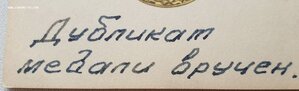 Дубликат
медали вручен.